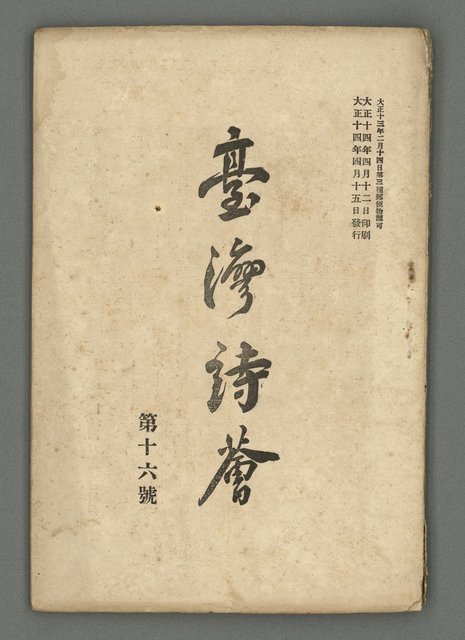 大正十三年二月十四日第三種郵便物認可
大正十四年四月十二日印刷
大正十四年四月十五日發行
臺灣詩薈
第十六號